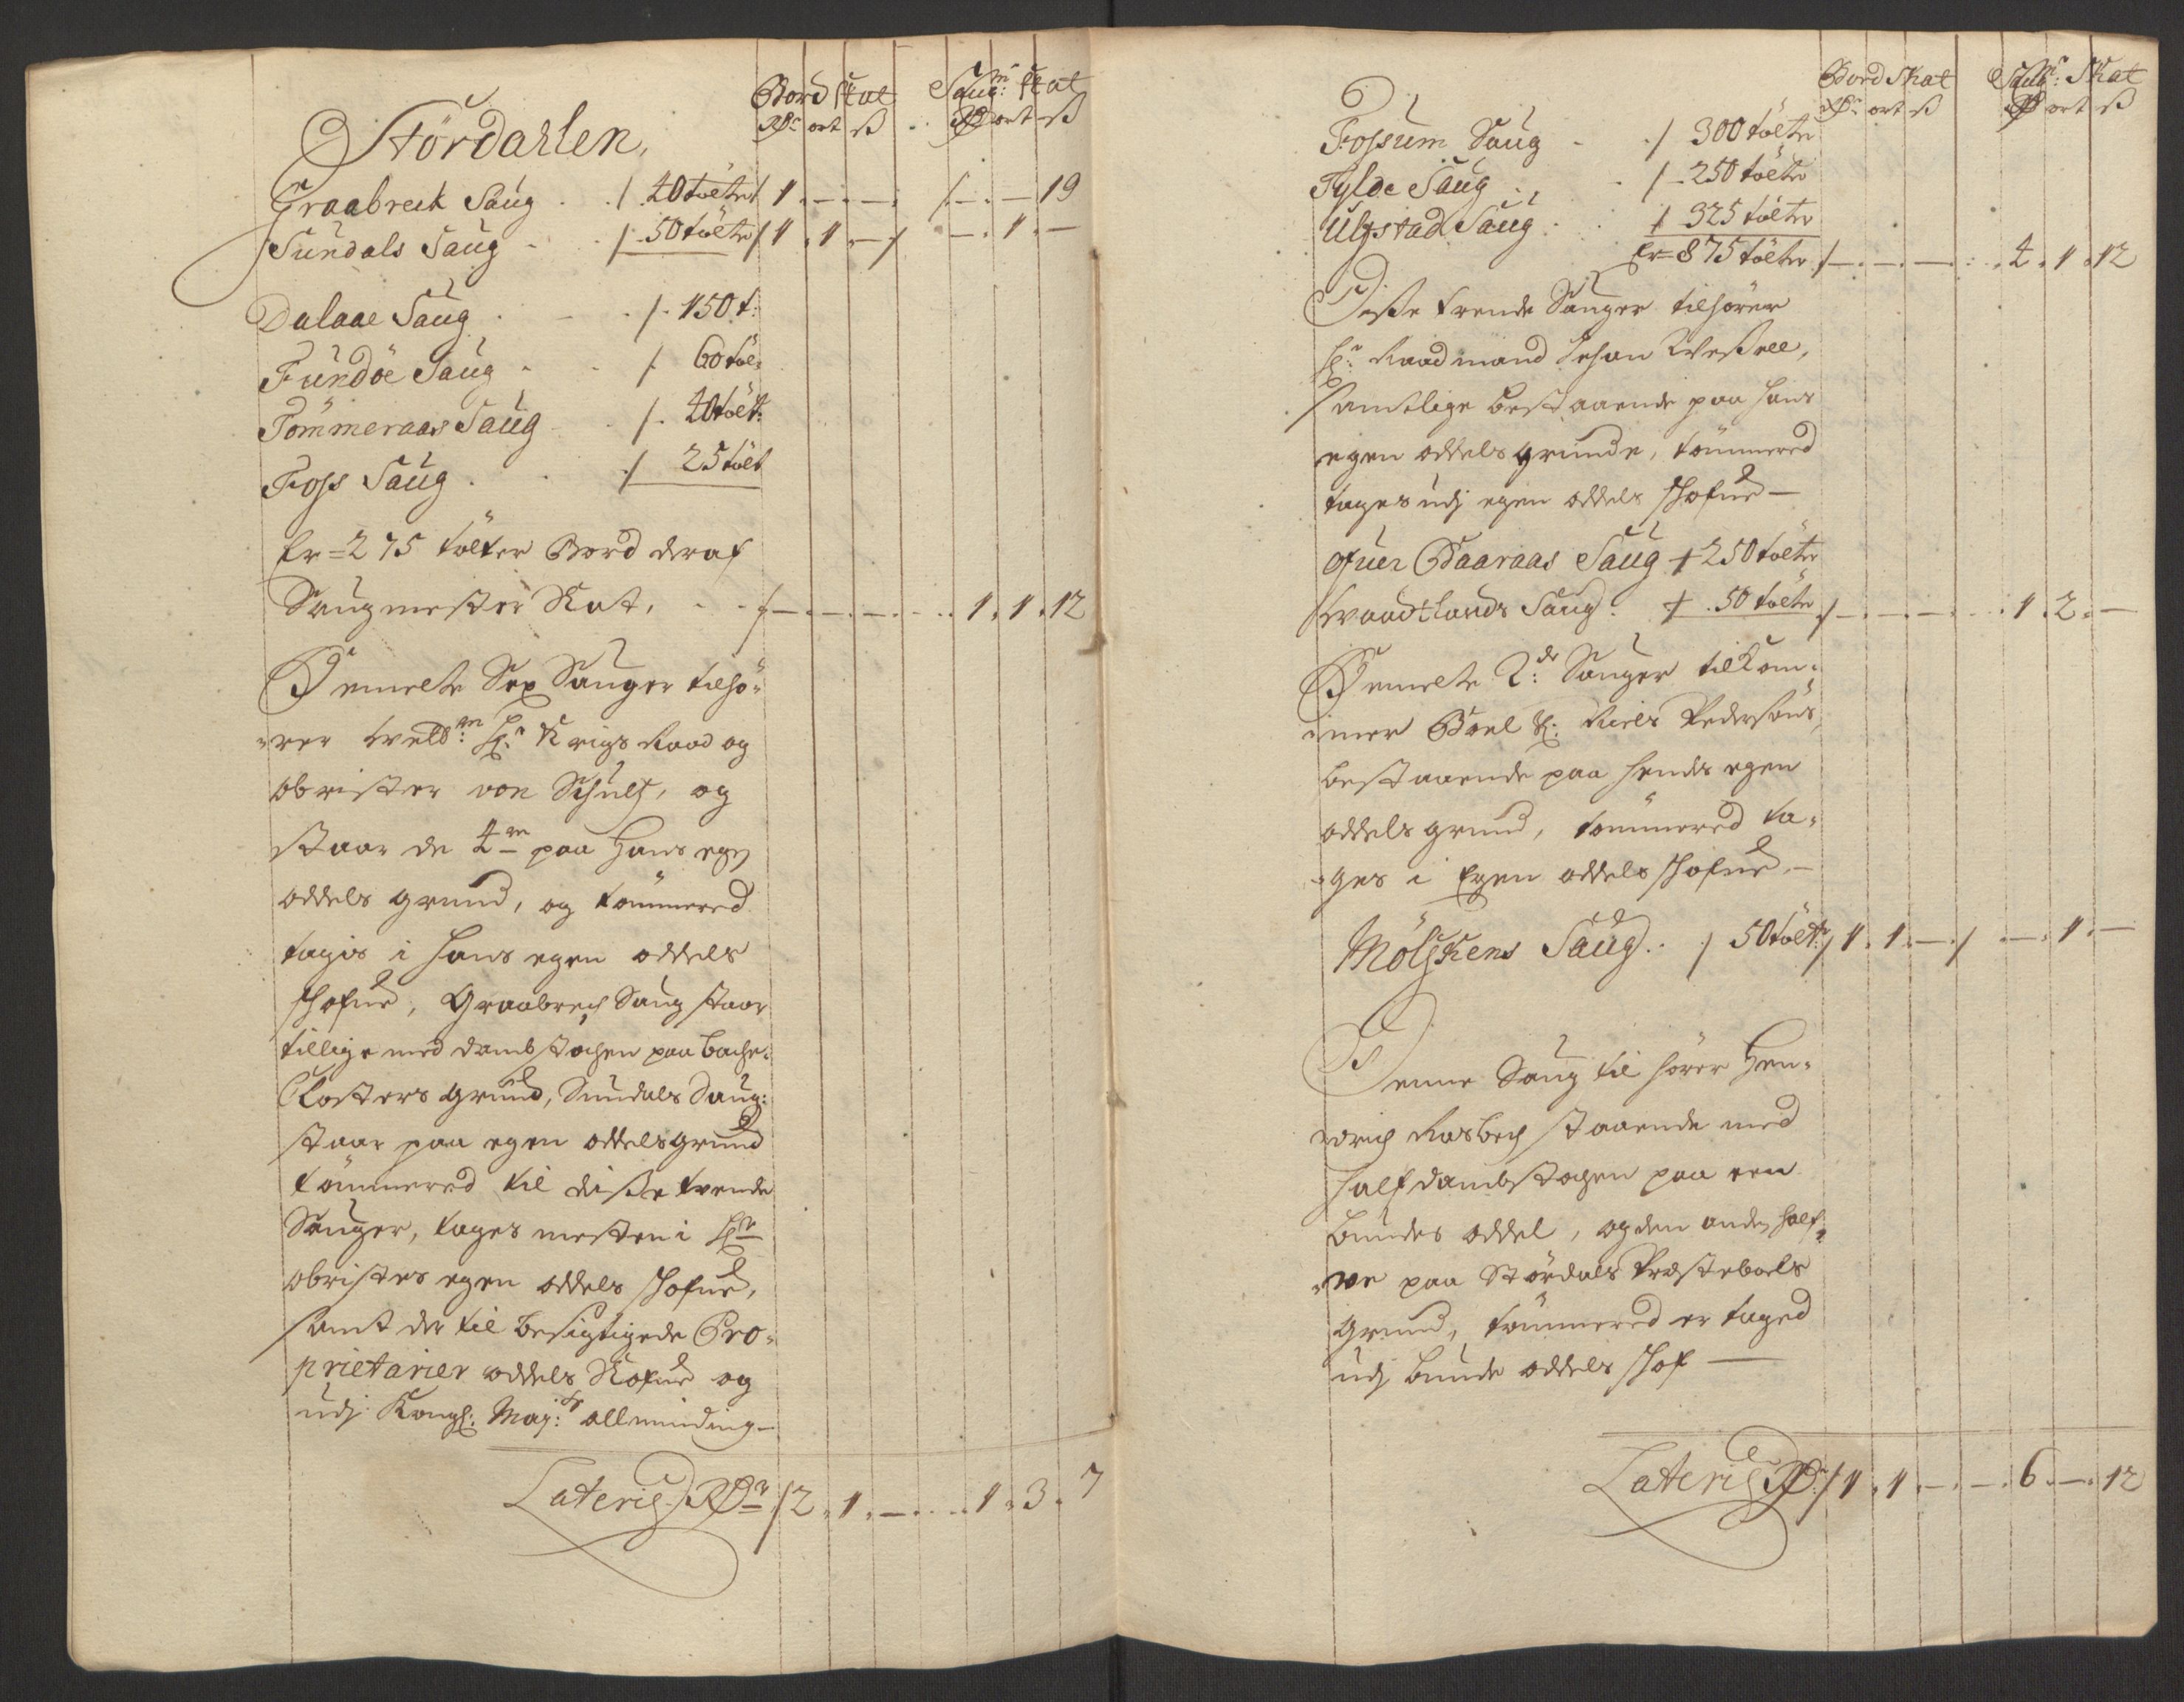 Bord skat Saug:m skat
Rd:r ort ß Rd ort ß
Stördahlen,
Graabreck Saug . ./. 40 tolter / 1. — . — . /. — . — 19
Sundals Saug - ./. 50 tölter / 1 . 1 . — / — . 1 . —
Dalaae Saug . - ./. 150 t:
Fundöe Saug - - /. 60 tol:
Tömmeraas Saug . ./. 40 tolt:
Foss Saug . . ./ 25 tolt
Er = 275 tölter Bord deraf
Saugmester Skat, . . /— . — . — . . . 1 . 1 . 12
Bemelte Sex Sauger tilhö-
rer Welb:m H:r Krigs Raad og
Obrister von Schultz, og
staar de 4re paa Hans egen
oddels grund, og tömmered
tagis i hans egen oddels
skofue, Graabrech Saug staar
tillige med dambstochen paa Bache
Closters grund, Sundals Saug:
staar paa egen oddelsgrund
tömmered til disse tvende
Sauger, tages mesten i H:r
Obristes egen oddels skofue,
samt der til besigtigede Pro-
prietarier oddels Skofue og
udj Kongl: Maj:ts allminding —
Lateris Rd:r / 2 . 1 . — . . . 1 . 3 . 7
Bord Skat Saug:m Skat
Rd:r ort ß Rd ort ß
Fossum Saug - ./ 300 tölter
Fylde Saug . , . /- 250 tölter
Ulfstad Saug . . / 325 tölter
Er = 875 tölter /— . — . — . . 4 . 1 . 12
Disse trende Sauger tilhörer
H:r Raadmand Johan Wessell,
samtlige bestaaende paa hans
egen oddels grunde, tömmered
tages udj egen oddels skofue —
Ofuer Baaraas Saug / 250 tölter
Kvaadtlands Saug . / . 50 tölter /— . — . — . . 1 . 2 . —
Bemelte 2:de Sauger tilkom-
mer Boel Sl: Niels Pedersöns,
bestaaende paa hendes egen
oddels grund, tömmered ta-
ges i Egen oddels skofue —
Mölskens Saug . ./ 50 tölt:r / 1 . 1 . — / — . 1 . —
Denne Saug til hörer Hen-
drich Rasbech staaende med
half dambstochen paa een
bundes oddel, og den anden half-
ve paa Stördals Præstebols
Grund, tömmered er taged
udj bunde oddels skof —
Lateris Rd:r / 1 . 1 . — . — . . 6 . — . 12